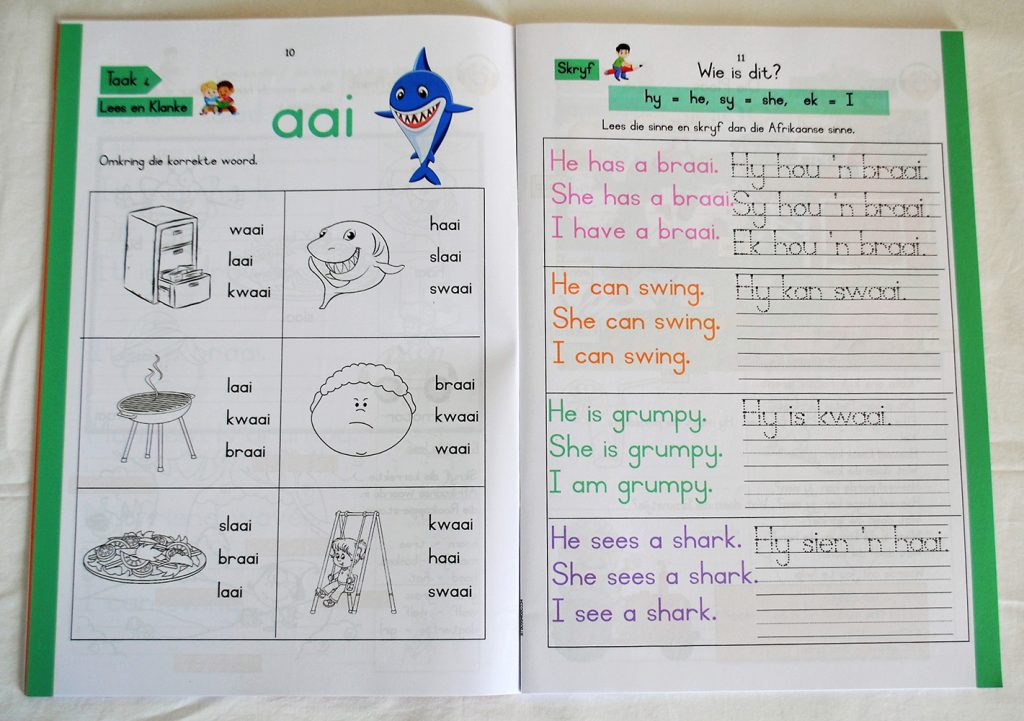 10
Taak
Lees en Klanke
aai
Omkring die korrekte woord.
waai
laai
kwaai
haai
slaai
swaai
laai
kwaai
braai
braai
kwaai
waai
slaai
braai
laai
kwaai
haai
swaai
11
Skryf
Wie is dit?
hy = he, sy = she, ek = I
Lees die sinne en skryf dan die Afrikaanse sinne.
He has a braai. Hy hou 'n braai.
She has a braai. Sy hou 'n braai.
I have a braai. Ek hou 'n braai.
He can swing. Hy kan swaai.
She can swing.
I can swing.
He is grumpy. Hy is kwaai.
She is grumpy.
I am grumpy.
He sees a shark. Hy sien 'n haai.
She sees a shark.
I see a shark.